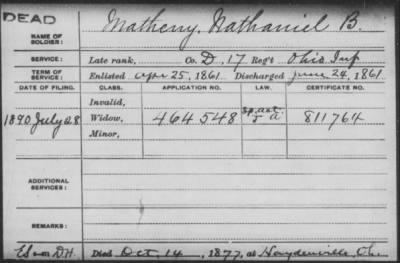 DEAD
NAME OF SOLDIER: Matheny, Nathaniel B.
SERVICE: Late rank, Co. D, 17 Reg't Ohio Inf
TERM OF SERVICE: Enlisted Apr 25, 1861 Discharged June 24, 1861
DATE OF FILING. CLASS. APPLICATION NO. LAW. CERTIFICATE NO.
Invalid,
1890 July 28 Widow, 464548 811764
Minor,
ADDITIONAL SERVICES:
REMARKS:
Died Oct. 14, 1877, at Haydenville, Oh.